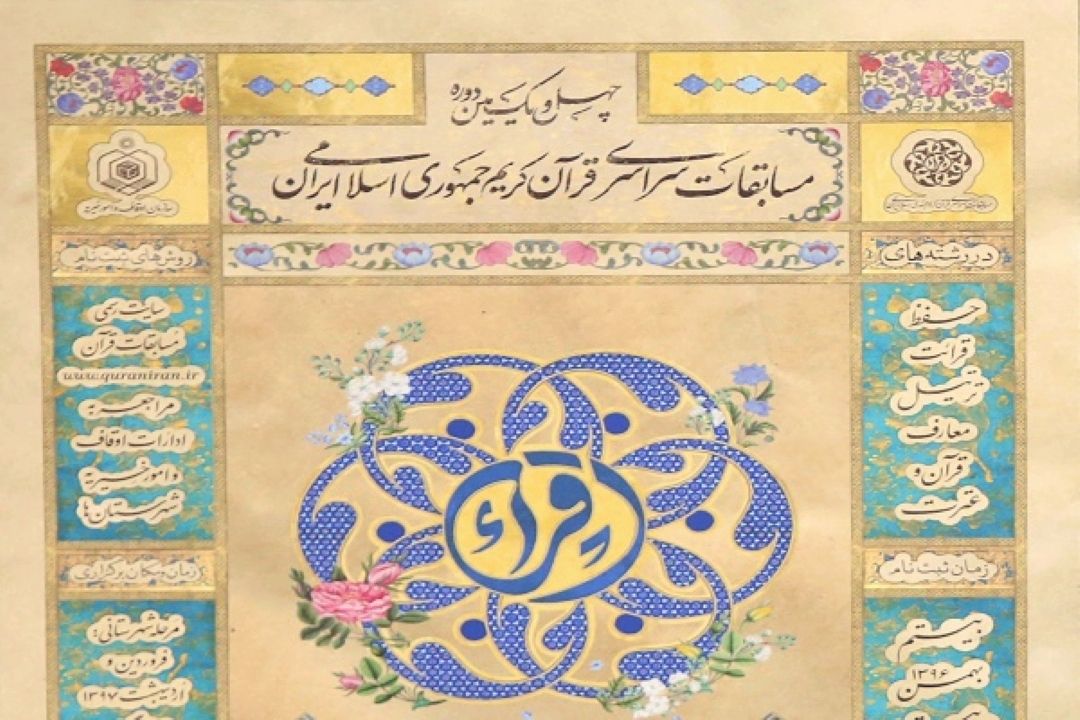 چهل و یکمین دوره
مسابقات سراسری قرآن کریم جمهوری اسلامی ایران
سازمان اوقاف و امور خیریه
در رشته‌های
حفظ
قرائت
ترتیل
معارف
قرآن و
عترت
زمان ثبت نام
بیستم
بهمن ۱۳۹۶
روش‌های ثبت نام
سایت رسمی
مسابقات قرآن
www.quraniran.ir
مراجعه به
ادارات اوقاف
و امور خیریه
شهرستان‌ها
زمان و مکان برگزاری
مرحله شهرستانی:
فروردین و
اردیبهشت ۱۳۹۷
اقراء